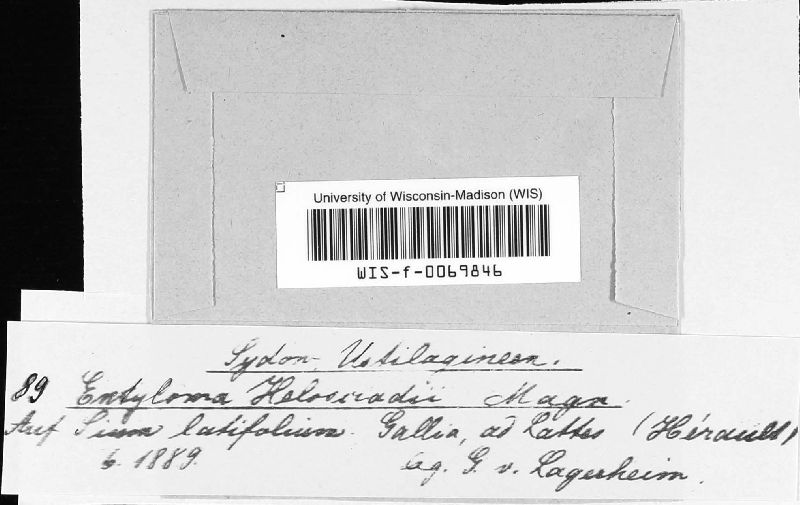 University of Wisconsin-Madison (WIS)
WIS-f-0069846
Sydow, Ustilagineen.
89 Entyloma Helosciadii Magn.
Auf Sium latifolium. Gallia, ad Lattes (Hérault)
6. 1889. leg. G. v. Lagerheim.